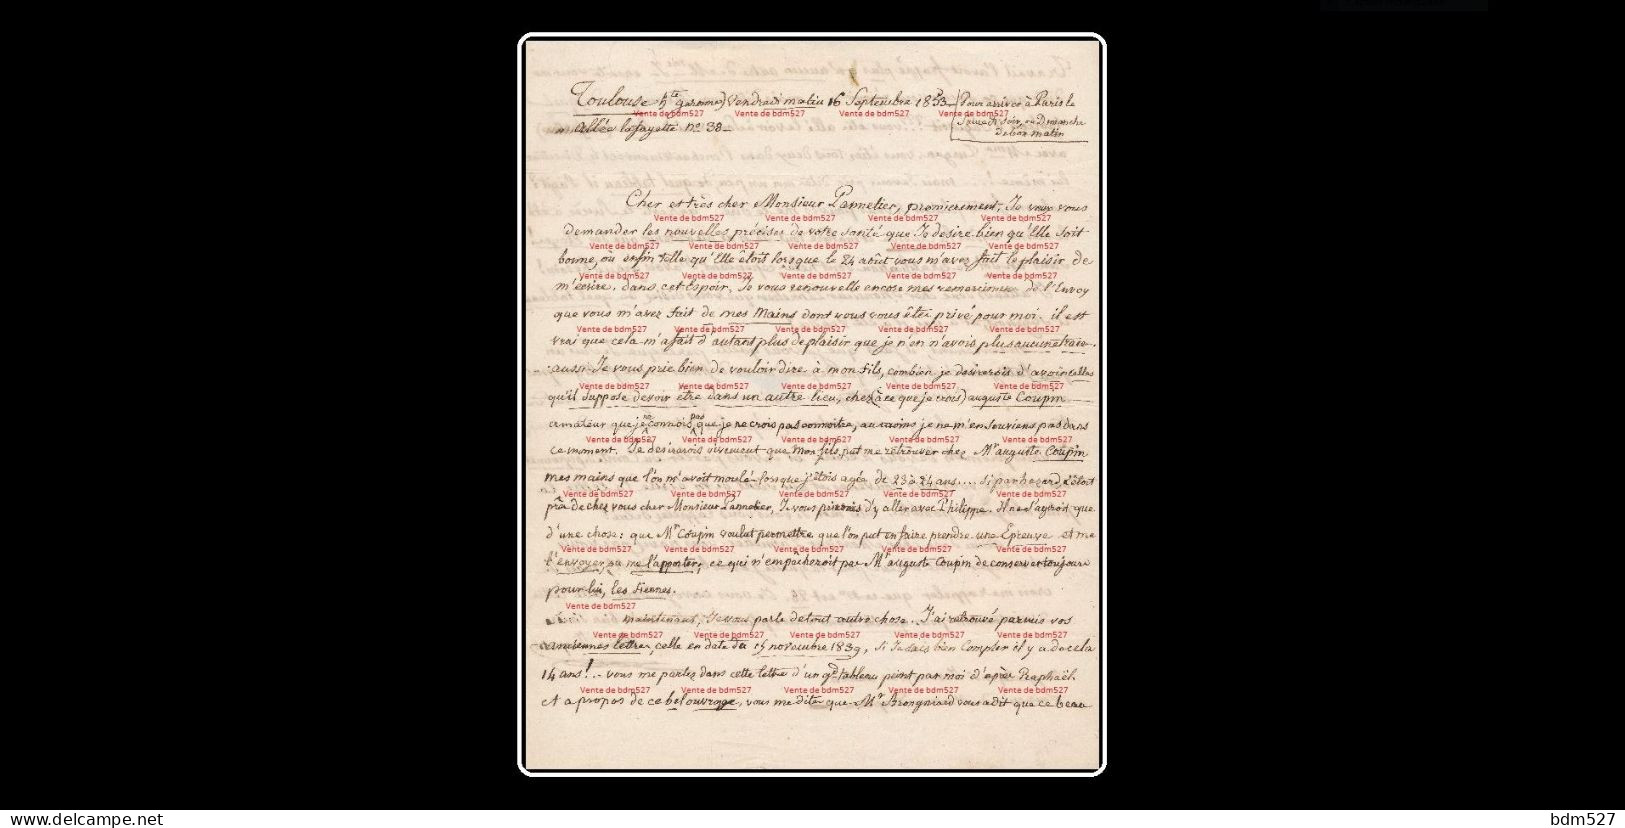 Toulouse hte garonne) Vendredi matin 16 Septembre 1853.
Pour arriver à Paris le
Samedi soir, ou Dimanche
de bon matin
Allée lafayette no 38
Cher et très cher Monsieur Pannetier, premièrement, Je veux vous
demander les nouvelles précises de votre santé que Je desire bien qu'Elle soit
bonne, ou enfin telle qu'Elle êtoit lorsque le 24 août vous m'avez fait le plaisir de
m'écrire. dans cet Espoir, Je vous renouvelle encore mes remercimens de l'Envoy
que vous m'avez fait de mes Mains dont vous vous êtes privé pour moi. il est
vrai que cela m'a fait d'autant plus de plaisir que je n'en n'avois plus aucune trace.
aussi Je vous prie bien de vouloir dire à mon fils, combien je desirerois d'avoir celles
qu'il suppose devoir être dans un autre lieu, chez (à ce que je crois) auguste Coupin
amateur que je ne connois pas que je ne crois pas connoitre, au moins je ne m'en souviens pas dans
ce moment. Je desirerois vivement que mon fils, put me retrouver chez Mr auguste Coupin
mes mains que l'on m'avoit moulé lorsque j'êtois agée de 23 à 24 ans.... si par hazard, c'êtoit
près de chez vous cher Monsieur Pannetier, Je vous prierois d'y aller avec Philippe. Il ne s'agiroit que
d'une chose: que Mr Coupin voulut permettre que l'on put en faire prendre une Epreuve et me
l'envoyer, ou me l'apporter, ce qui n'empêcheroit pas Mr auguste Coupin de conserver toujours
pour lui, les siennes.
maintenant, Je vous parle de tout autre chose. J'ai retrouvé parmis vos
anciennes lettres, celle en date du 15 novembre 1839, si Je sais bien Compter il y a de cela
14 ans! - vous me parlez dans cette lettre d'un gd tableau peint par moi d'après Raphaël
et a propos de ce bel ouvrage, vous me dites que Mr Brongniard vous a dit que ce beau
Vente de bdm527
delcampe.net
bdm527